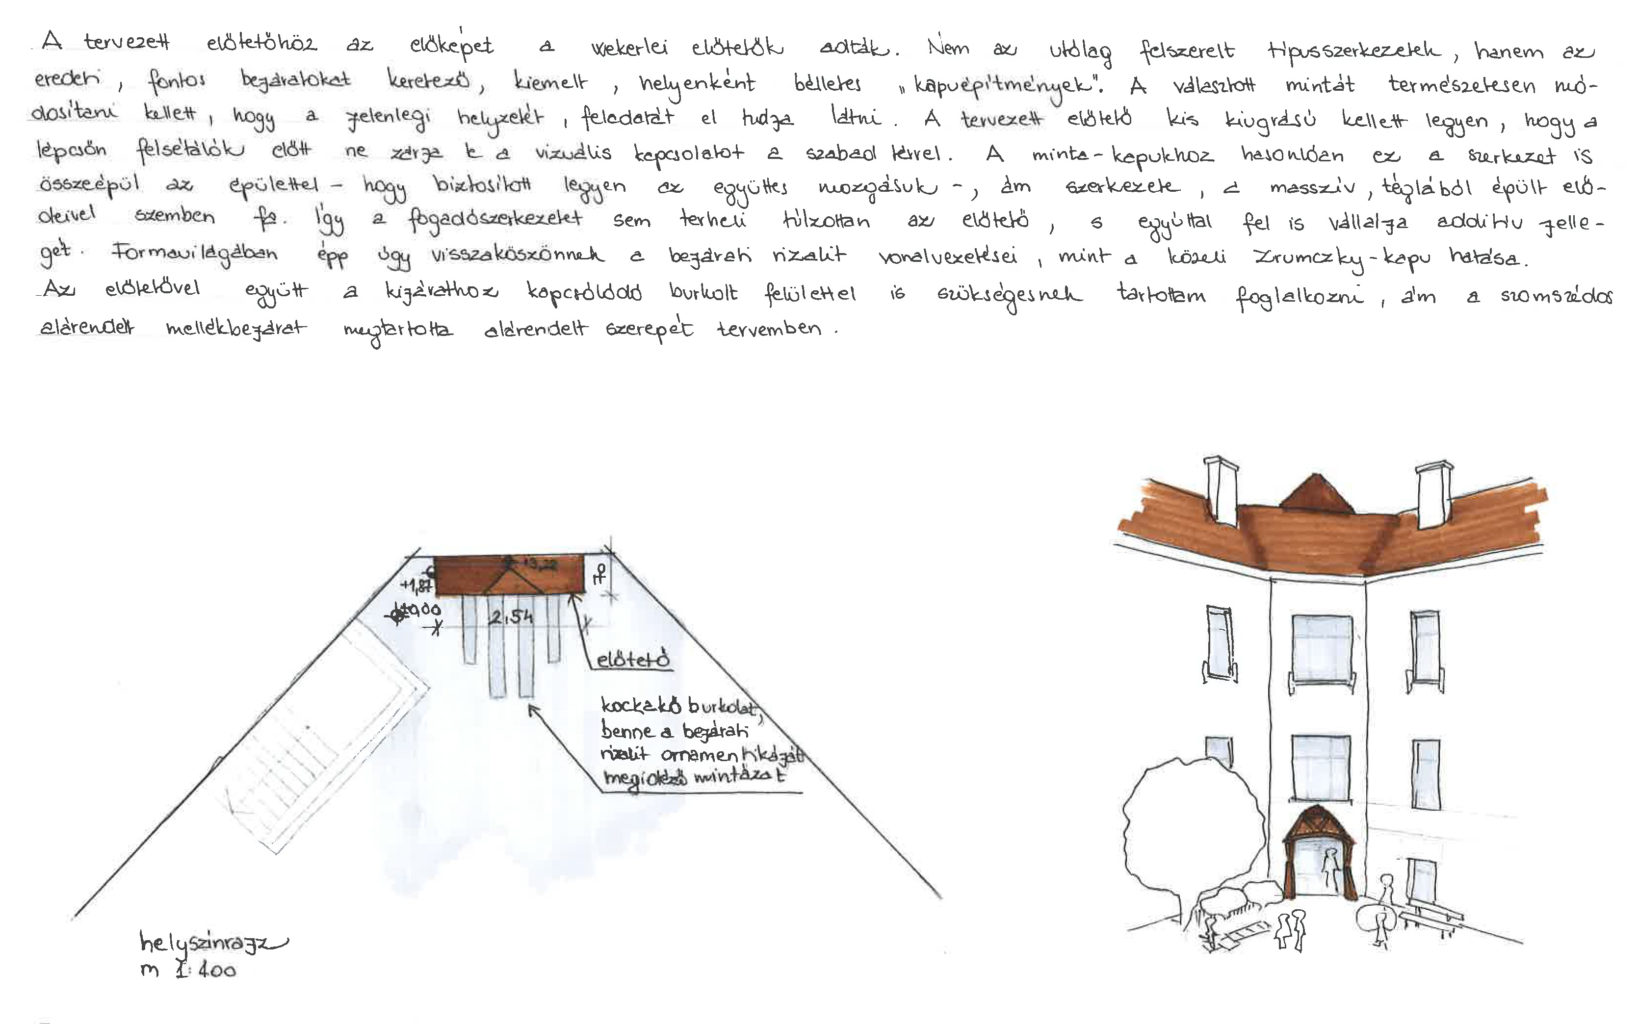 A tervezett előtetőhöz az előképet a wekerlei előtetők adták. Nem az utólag felszerelt típusszerkezetek, hanem az
eredeti, fontos bejáratokat keretező, kiemelt, helyenként bélletes „kapuépítmények". A választott mintát természetesen mó-
dosítani kellett, hogy a jelenlegi helyzetét, feladatát el tudja látni. A tervezett előtető kis kiugrású kellett legyen, hogy a
lépcsőn felsétálók előtt ne zárja le a vizuális kapcsolatot a szabad térrel. A minta-kapukhoz hasonlóan ez a szerkezet is
összeépül az épülettel – hogy biztosított legyen az együttes mozgásuk –, ám szerkezete, a masszív, téglából épült elő-
deivel szemben fa. Így a fogadószerkezetet sem terheli túlzottan az előtető, s egyúttal fel is vállalja additív jelle-
gét. Formavilágában épp úgy visszaköszönnek a bejárati rizalit vonalvezetései, mint a közeli Zrumczky-kapu hatása.
Az előtetővel együtt a kijárathoz kapcsolódó burkolt felülettel is szükségesnek tartottam foglalkozni, ám a szomszédos
alárendelt mellékbejárat megtartotta alárendelt szerepét tervemben.
+3,22
+1,87
±0,00
2,54
előtető
kockakő burkolat,
benne a bejárati
rizalit ornamentikáját
megidéző mintázat
helyszínrajz
m 1:100